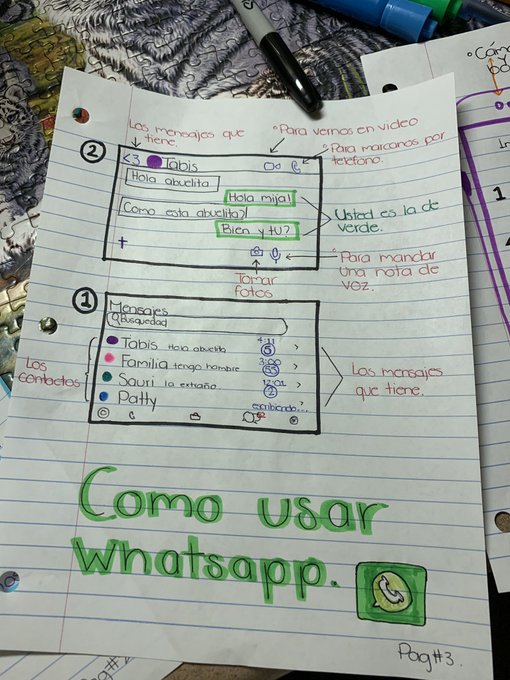 Los mensajes que
tiene.
Para vernos en video
Para marcarnos por
telefono.
2
<3 Tabis
Hola abuelita
Hola mija!
Como esta abuelita?
Bien y tu?
Usted es la de
verde.
+
Tomar
fotos
Para mandar
una nota de
voz.
1
Mensajes
Busquedad
Tabis Hola abuelita 4:11 5 >
Familia tengo hambre 3:00 55 >
Sauri la extraño 12:01 2 >
Patty escribiendo... >
Los
contactos
Los mensajes
que tiene.
Como usar
Whatsapp.
Pag#3.
Pag#2
Cómo
1